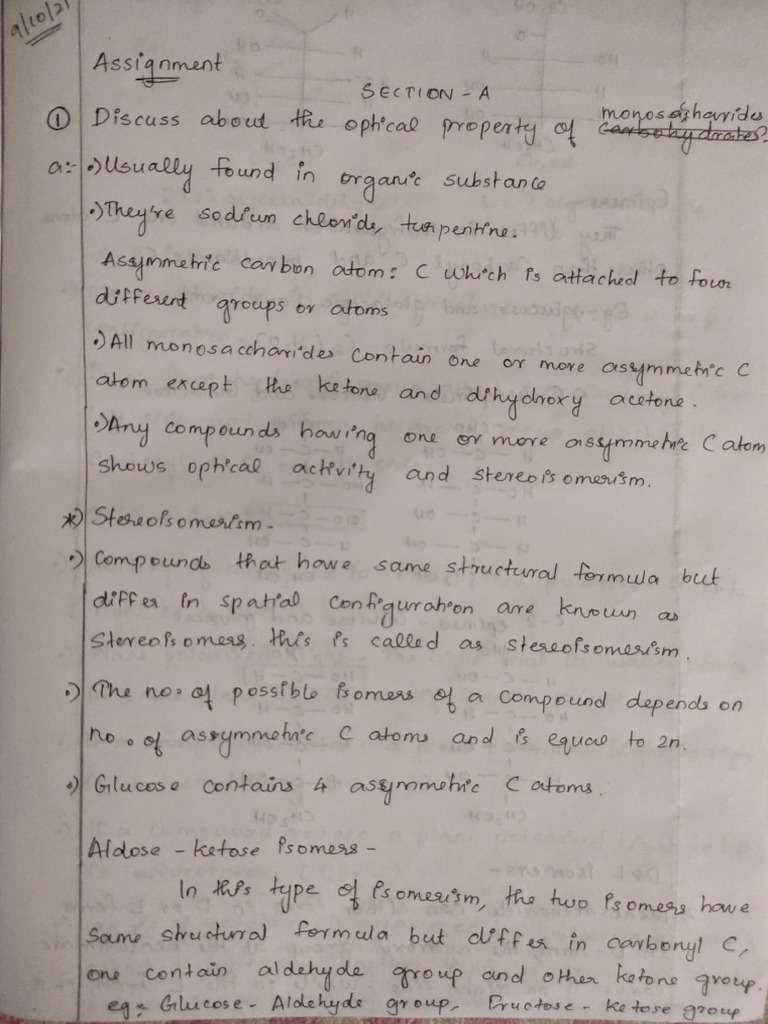 9/10/21
Assignment
SECTION - A
① Discuss about the optical property of monosaccharides Carbohydrates?
a:- •) Usually found in organic substance
•) They're sodium chloride, turpentine.
Assymmetric carbon atom: C which is attached to four
different groups or atoms
•) All monosaccharides contain one or more assymmetric C
atom except the ketone and dihydroxy acetone.
•) Any compounds having one or more assymmetric C atom
shows optical activity and stereoisomerism.
*) Stereoisomerism -
•) Compounds that have same structural formula but
differ in spatial configuration are known as
Stereoisomers. this is called as stereoisomerism.
•) The no. of possible isomers of a compound depends on
no. of assymmetric C atoms and is equal to 2n.
•) Glucose contains 4 assymmetric C atoms.
Aldose - ketose isomers -
In this type of isomerism, the two isomers have
same structural formula but differ in carbonyl C,
one contain aldehyde group and other ketone group.
eg:- Glucose - Aldehyde group, Fructose - ketose group